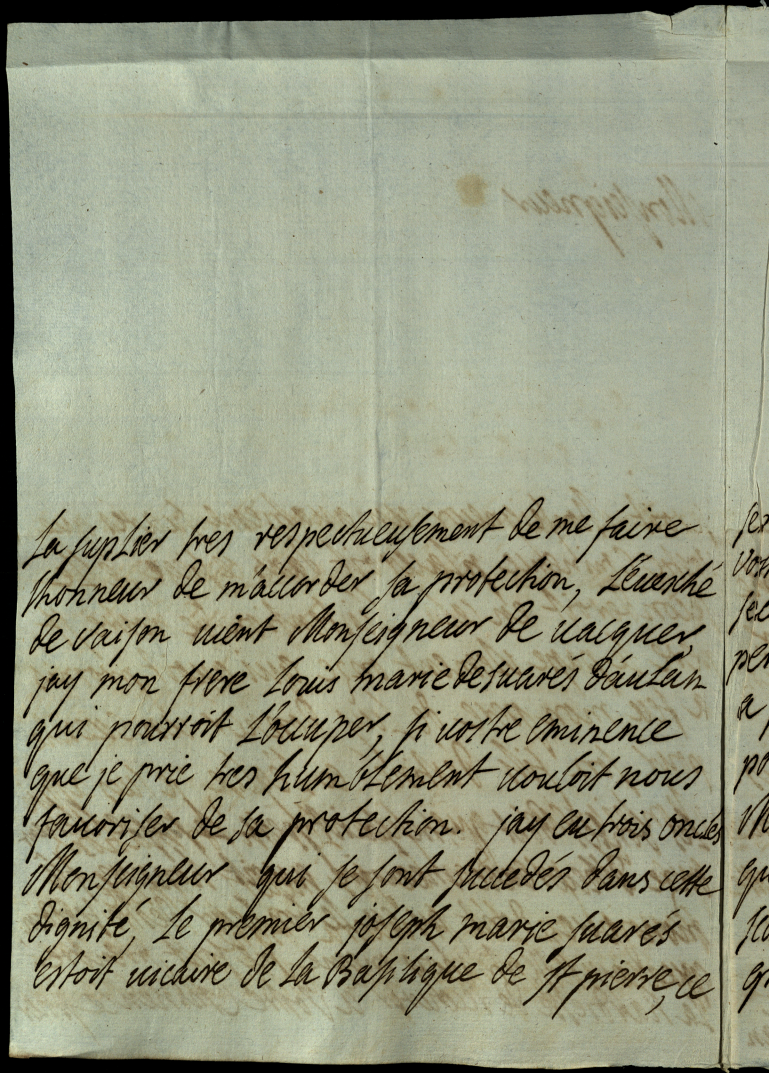 la suplier tres respectueusement de me faire
lhonneur de m'accorder sa protection, L'evesché
de vaison vient Monseigneur de vacquer,
jay mon frere Louis marie de suarés d'aulan
qui pourroit L'occuper, si vostre eminence
que je prie tres humblement vouloit nous
favoriser de sa protection. jay eu trois oncles
Monseigneur qui se sont succedés dans cette
dignité, Le premier joseph marie suarés
estoit vicaire de la Basilique de st pierre, ce